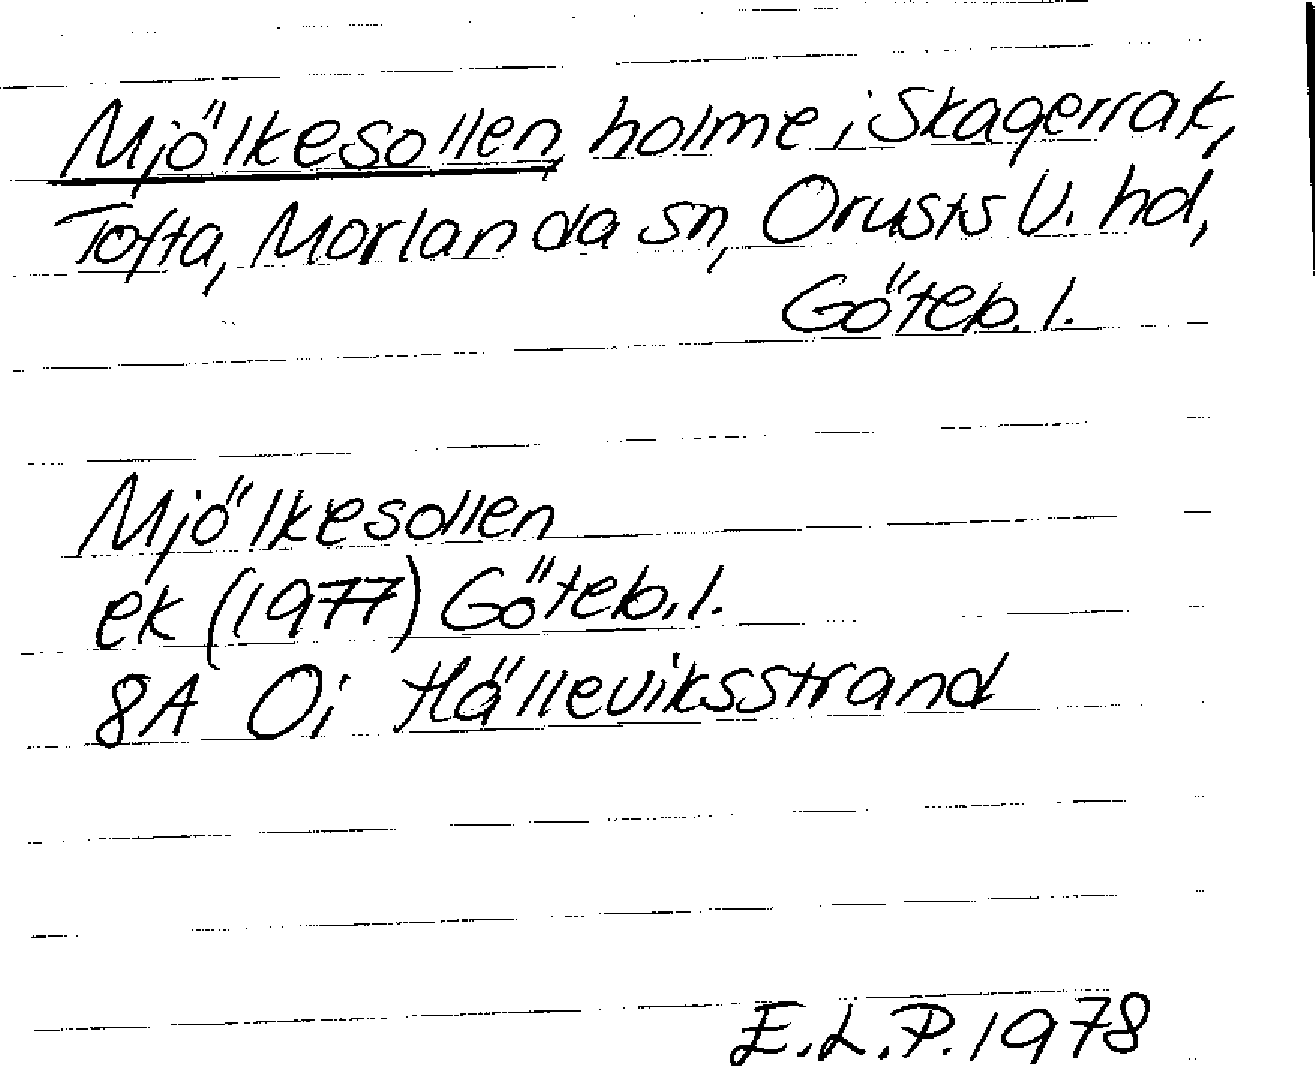 Mjölkesollen, holme i Skagerrak,
Tofta, Morlanda sn, Orusts V. hd,
Göteb. l.
Mjölkesollen
ek (1977) Göteb. l.
8A Oi Hälleviksstrand
E.L.P. 1978